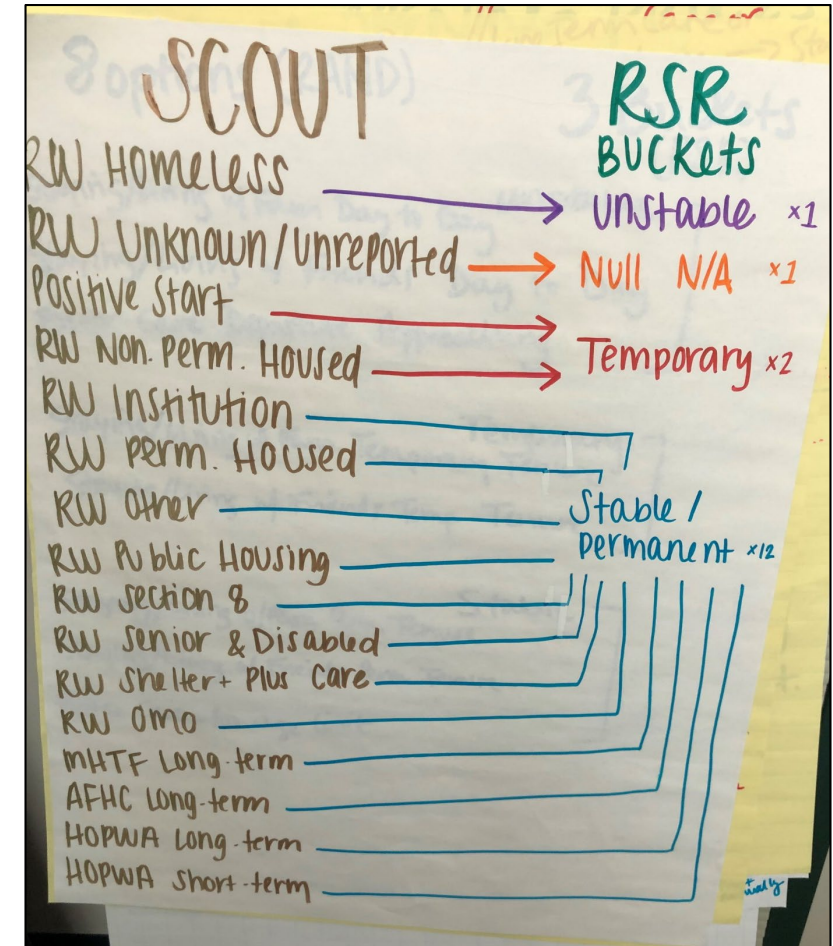 SCOUT
RSR
BUCKets
RW Homeless
unstable x1
RW Unknown/Unreported
Null N/A x1
Positive Start
RW Non. Perm. Housed
Temporary x2
RW Institution
RW Perm. Housed
RW Other
Stable /
permanent x12
RW Public Housing
RW Section 8
RW Senior & Disabled
RW Shelter + Plus Care
RW OMO
MHTF Long-term
AFHC Long-term
HOPWA Long-term
HOPWA Short-term